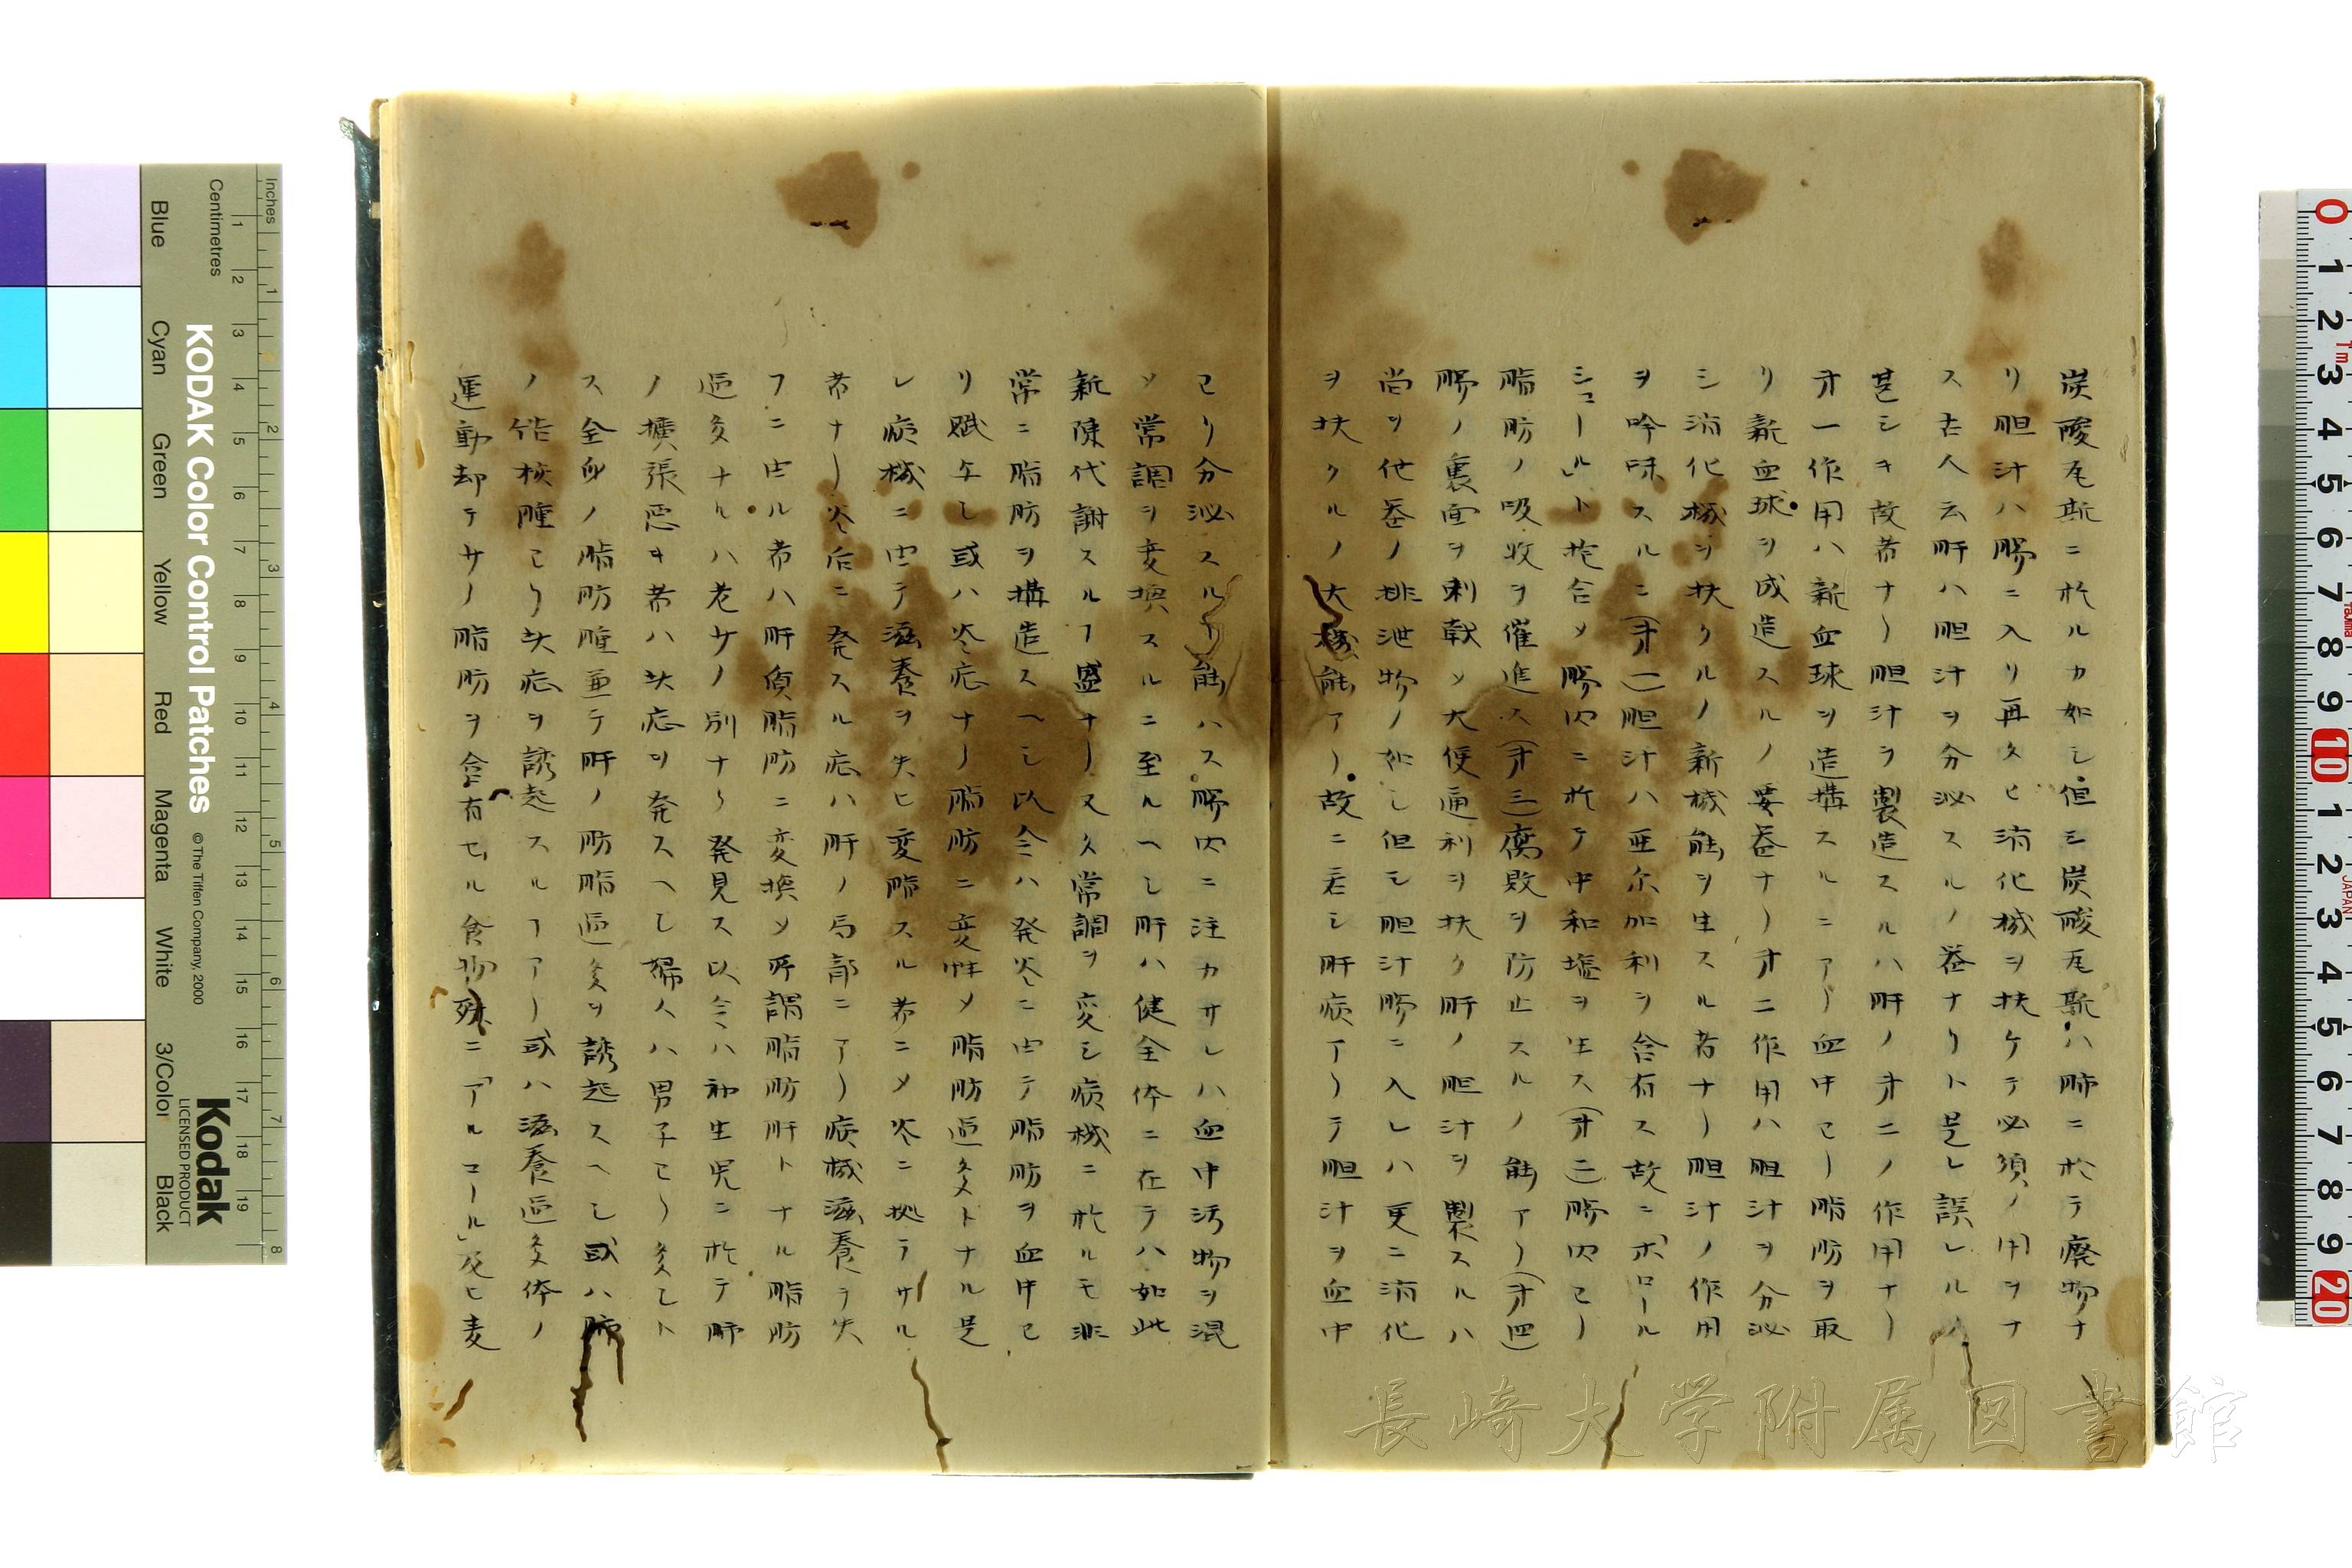 炭酸瓦斯ニ於ルカ如シ但シ炭酸瓦斯ハ肺ニ於テ廃物ナ
リ胆汁ハ腸ニ入リ再タヒ消化機ヲ扶ケテ必須ノ用ヲナ
ス古人云肝ハ胆汁ヲ分泌スルノ器ナリト是レ誤レルノ
甚シキ故者ナリ胆汁ヲ製造スルハ肝ノ才二ノ作用ナリ
才一作用ハ新血球ヲ造搆スルニアリ血中ヨリ脂肪ヲ取
リ新血球ヲ成造スルノ要器ナリ才二作用ハ胆汁ヲ分泌
シ消化機ヲ扶クルノ新機能ヲ生スル者ナリ胆汁ノ作用
ヲ吟味スルニ(才一)胆汁ハ亜尓加利ヲ含有ス故ニ「ポロール
シュール」ト抱合メ腸内ニ於テ中和塩ヲ生ス(才二)腸内ヨリ
脂肪ノ吸收ヲ催進ス(才三)腐敗ヲ防止スルノ能アリ(才四)
腸ノ裏面ヲ刺戟メ大便通利ヲ扶ク肝ノ胆汁ヲ製スルハ
尚ヲ他器ノ排泄物ノ如シ但シ胆汁腸ニ入レハ更ニ消化
ヲ扶クルノ大機能アリ故ニ若シ肝病アリテ胆汁ヲ血中
ヨリ分泌スル能ハス腸内ニ注カサレハ血中汚物ヲ混
メ常調ヲ変換スルニ至ルヘシ肝ハ健全体ニ在テハ如此
新陳代謝スルヿ盛ナリ又タ常調ヲ変シ病機ニ於ルモ非
常ニ脂肪ヲ搆造スヘシ以会ハ発炎ニ由テ脂肪ヲ血中ヨ
リ賦与シ或ハ炎症ナリ脂肪ニ変性メ脂肪過多トナル是
レ病機ニ由テ滋養ヲ失ヒ変脂スル者ニメ炎ニ拠テサル
者ナリ炎后ニ発スル症ハ肝ノ局部ニアリ病機滋養ヲ失
フニ由ル者ハ肝質脂肪ニ変換メ所謂脂肪肝トナル脂肪
過多ナルハ老少ノ別ナク発見ス以会ハ初生児ニ於テ肺
ノ擴張悪キ者ハ此症ヲ発スヘシ婦人ハ男子ヨリ多シト
ス全身ノ脂肪腫亜テ肝ノ肪脂過多ヲ誘起スヘシ或ハ肺
ノ結核腫ヨリ此症ヲ誘起スルヿアリ或ハ滋養過多体ノ
運動却テ少ノ脂肪ヲ含有セル食物殊ニ「アルコール」及ヒ麦
長崎大学附属図書館
KODAK Color Control Patches
© The Tiffen Company, 2000
Kodak
LICENSED PRODUCT
Inches
Centimetres
Blue Cyan Green Yellow Red Magenta White 3/Color Black